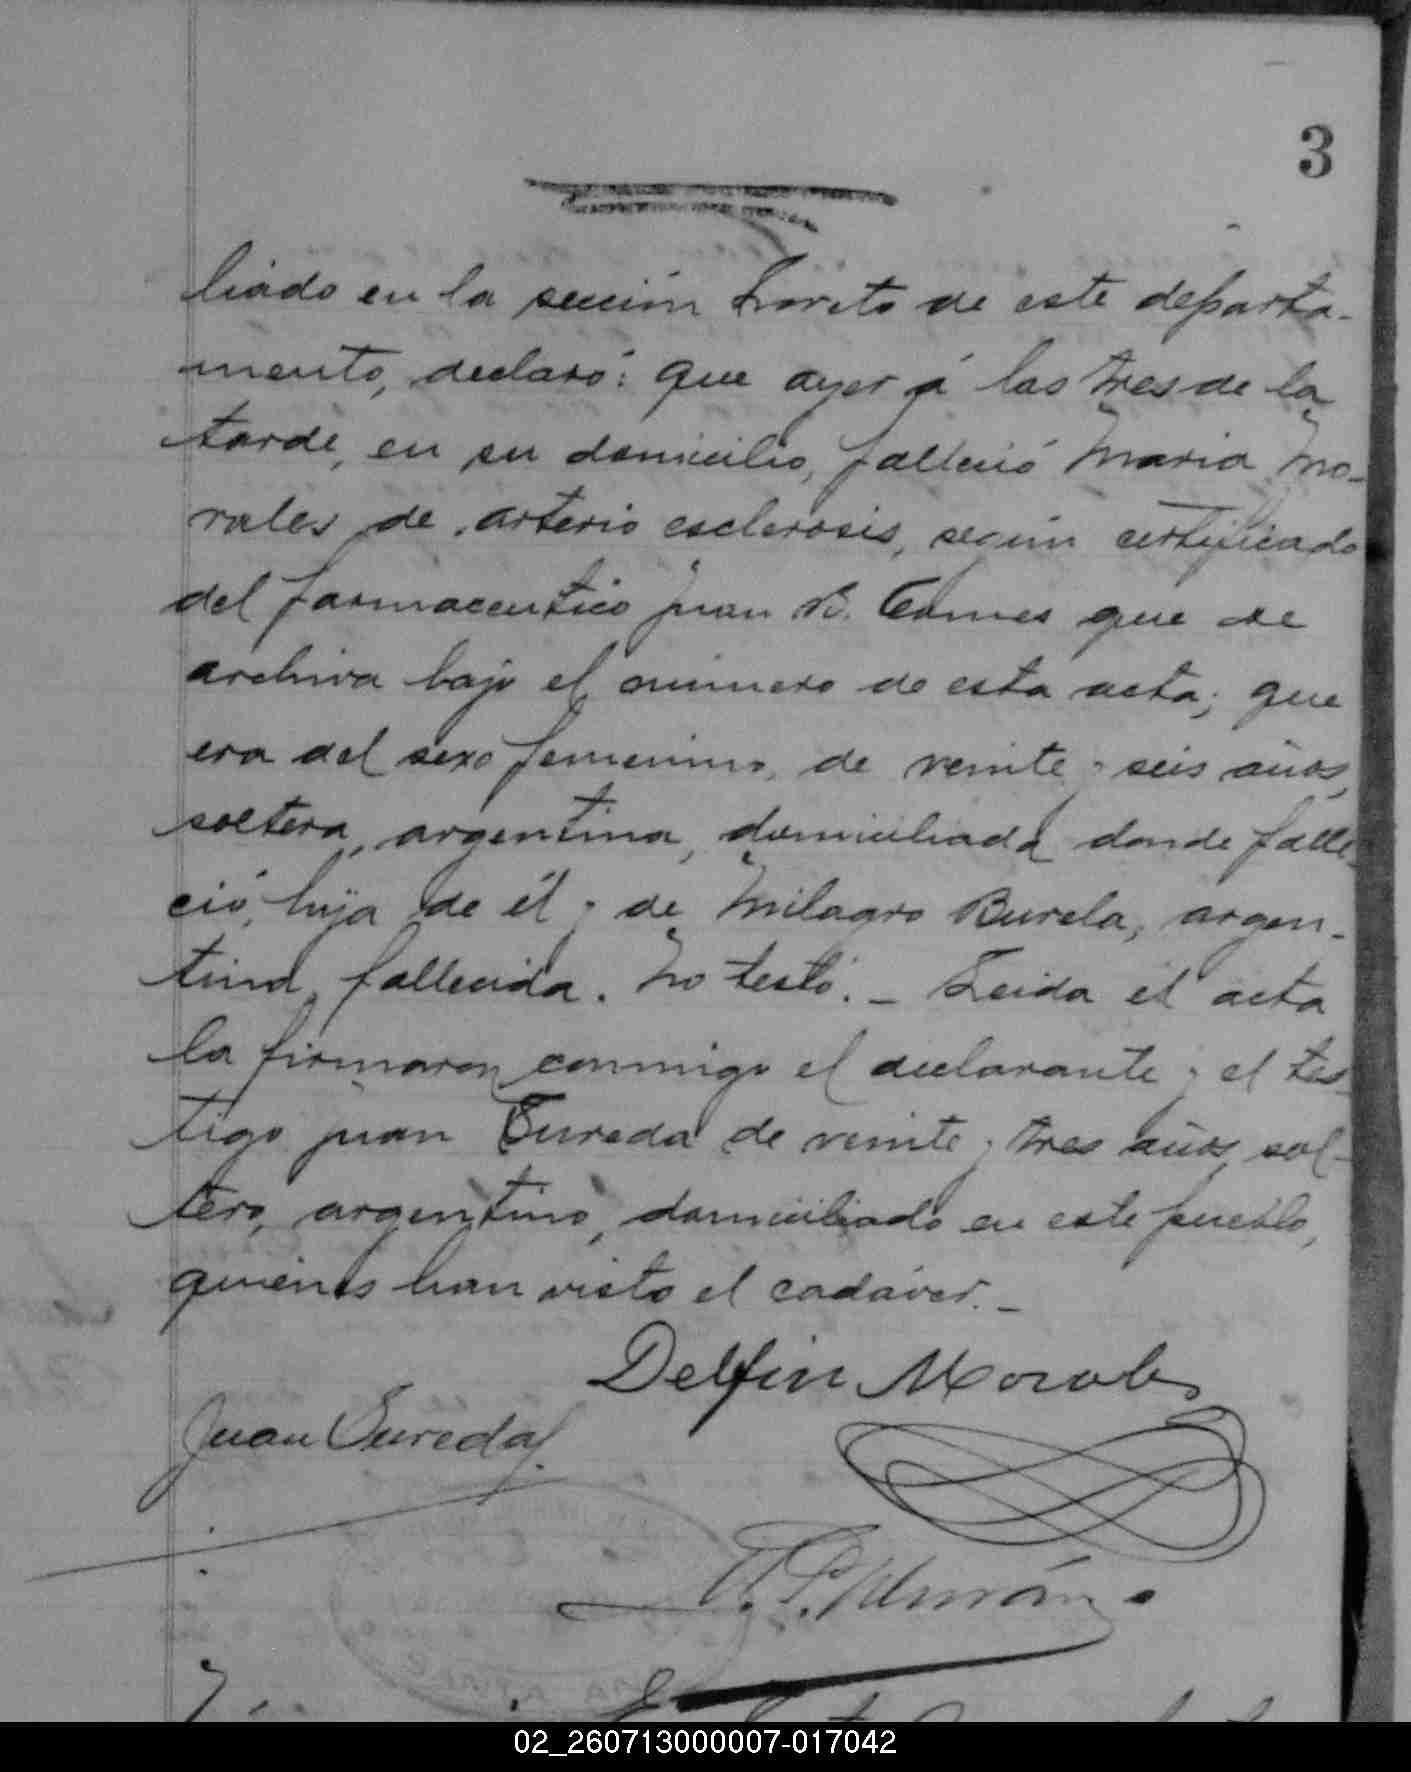 3
liado en la sección Loreto de este departa-
mento, declaró: que ayer á las tres de la
tarde, en su domicilio, falleció Maria Mo-
rales de arterio esclerosis, según certificado
del farmaceutico Juan B. Comes que se
archiva bajo el número de esta acta; que
era del sexo femenino, de veinte y seis años,
soltera, argentina, domiciliada donde falle-
ció, hija de él y de Milagro Burela, argen-
tina, fallecida. No testó. - Leida el acta
la firmaron conmigo el declarante y el tes-
tigo Juan Sureda de veinte y tres años, sol-
tero, argentino, domiciliado en este pueblo,
quienes han visto el cadáver. -
Delfin Morales
Juan Sureda
02_260713000007-017042